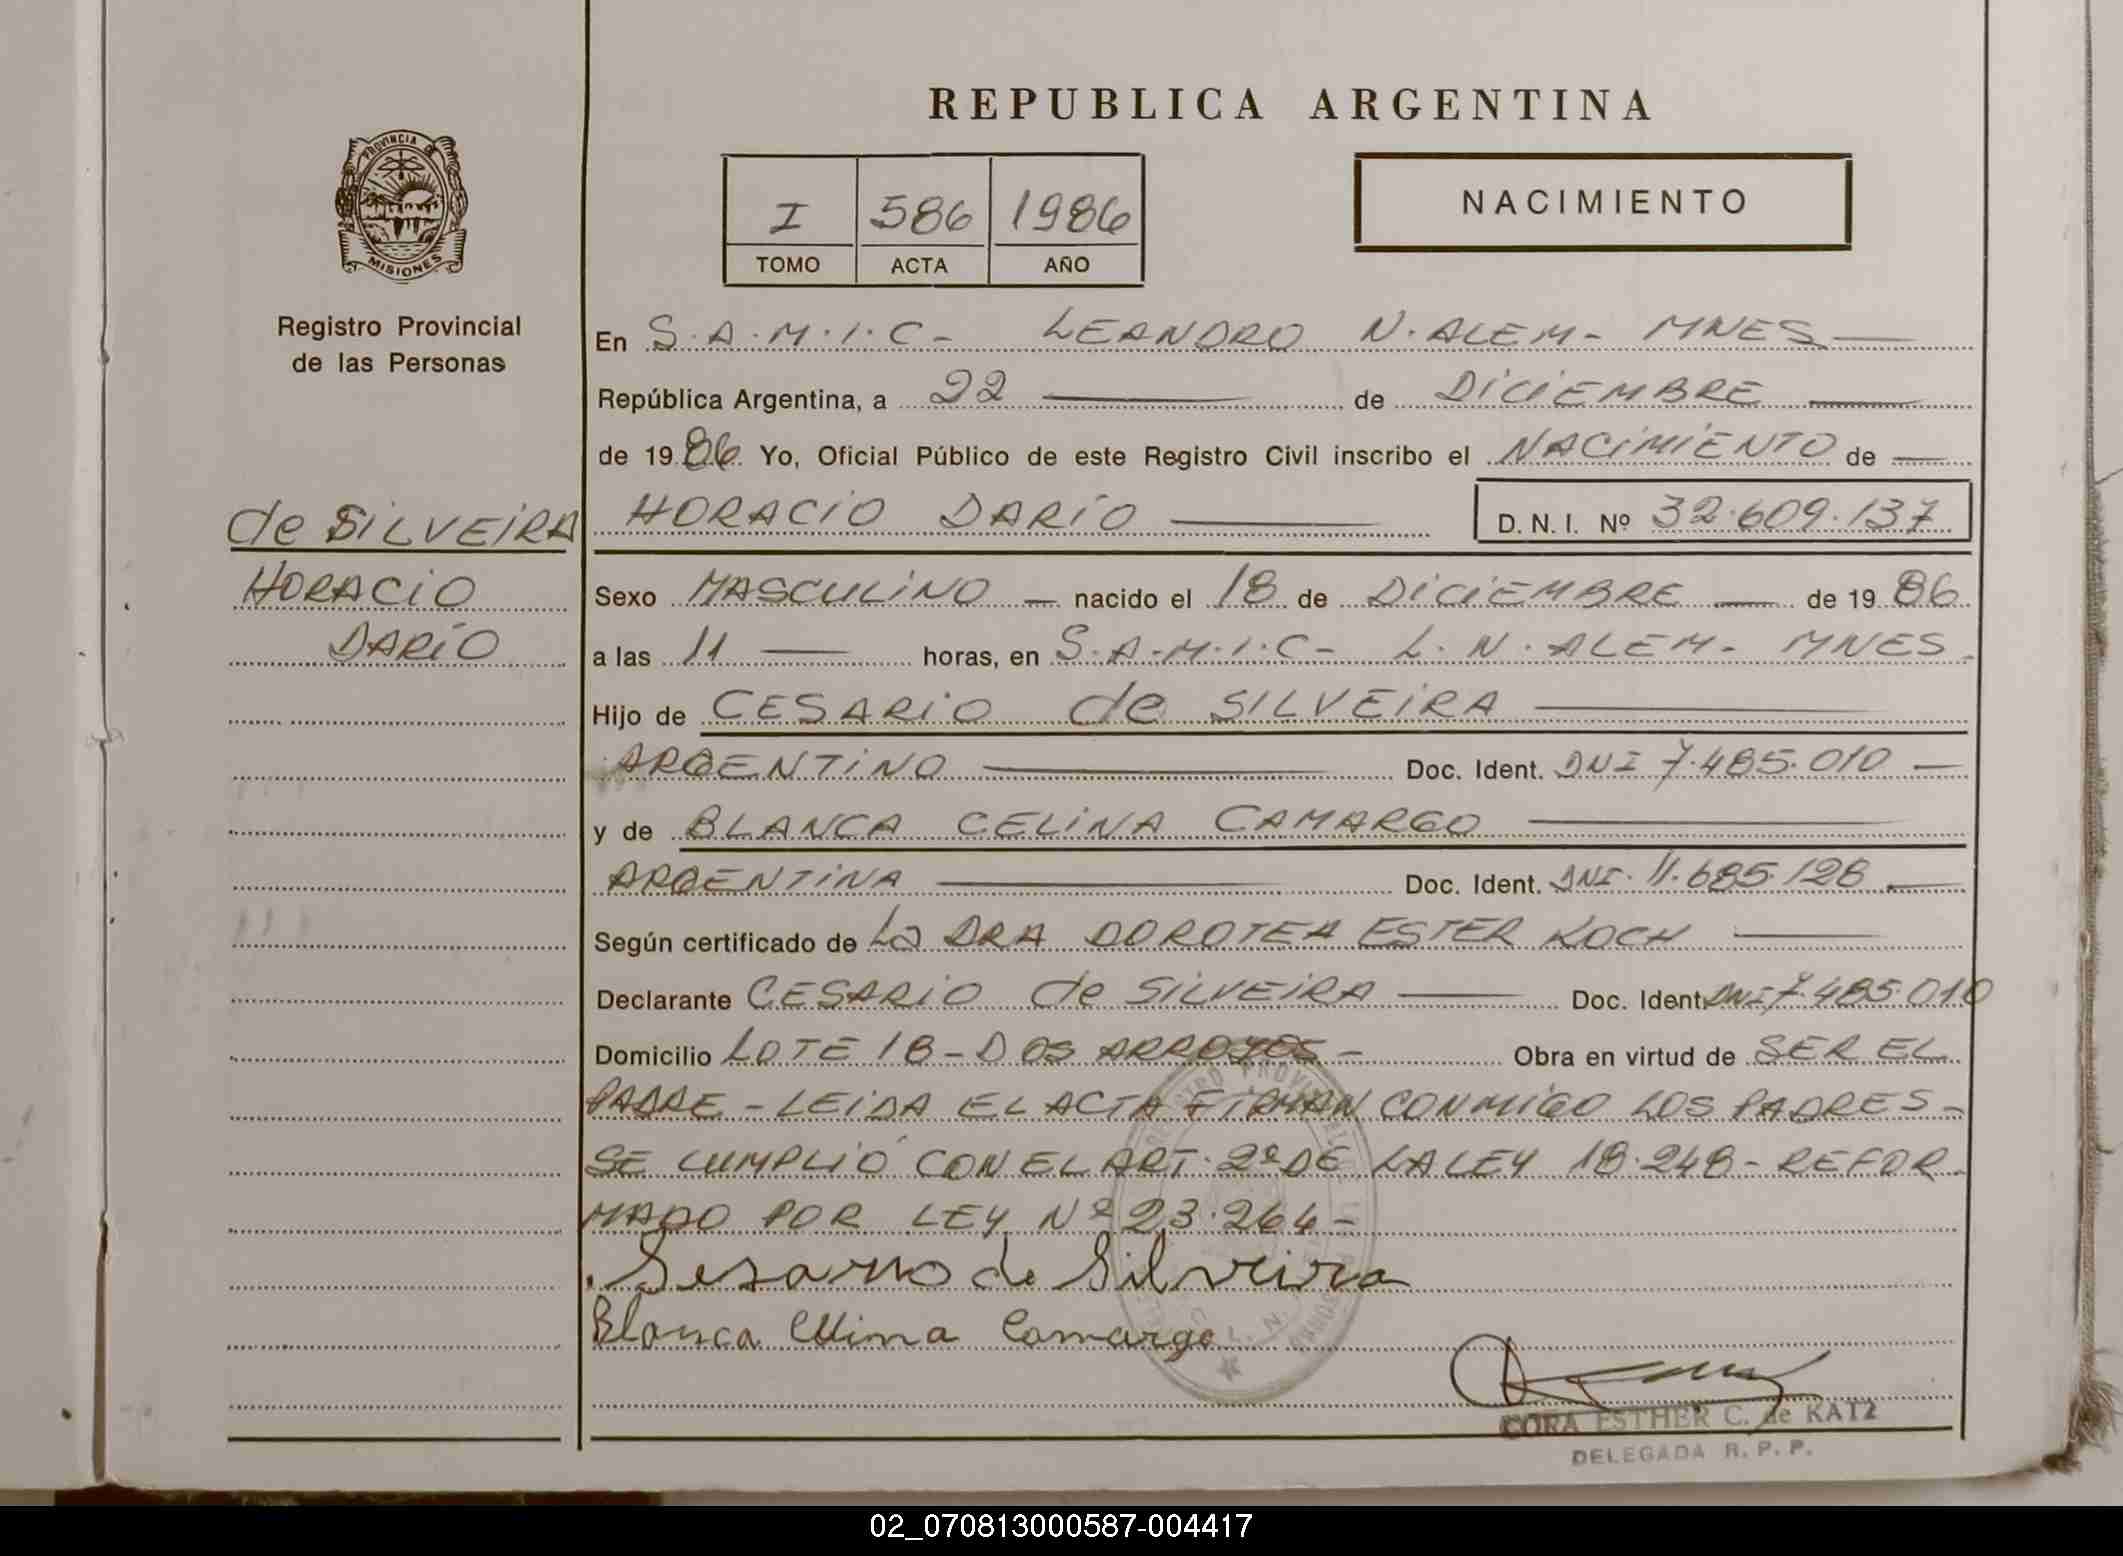 REPUBLICA ARGENTINA
PROVINCIA DE
MISIONES
Registro Provincial
de las Personas
I 586 1986
TOMO ACTA AÑO
NACIMIENTO
En S.A.M.I.C- LEANDRO N. ALEM- MNES
República Argentina, a 22 de DICIEMBRE
de 1986 Yo, Oficial Público de este Registro Civil inscribo el NACIMIENTO de
de SILVEIRA
HORACIO
DARIO
HORACIO DARÍO D. N. I. Nº 32.609.137
Sexo MASCULINO nacido el 18 de DICIEMBRE de 1986
a las 11 horas, en S.A.M.I.C- L.N. ALEM- MNES.
Hijo de CESARIO de SILVEIRA
ARGENTINO Doc. Ident. DNI 7.485.010
y de BLANCA CELINA CAMARGO
ARGENTINA Doc. Ident. DNI. 11.685.128
Según certificado de La DRA DOROTEA ESTER KOCH
Declarante CESARIO de SILVEIRA Doc. Ident. DNI 7.485.010
Domicilio LOTE 18-DOS ARROYOS- Obra en virtud de SER EL
PADRE - LEIDA EL ACTA FIRMAN CONMIGO LOS PADRES-
SE CUMPLIÓ CON EL ART. 2º DE LA LEY 18.248- REFOR
MADO POR LEY Nº 23.264-
Sesario de Silveira
Blanca Celina Camargo
CORA ESTHER C. de KATZ
DELEGADA R. P. P.
02_070813000587-004417